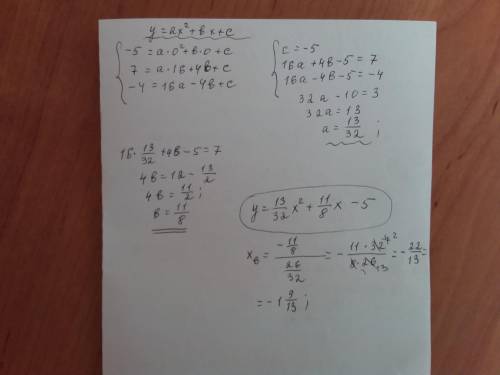 y = ax² + bx + c
-5 = a·0² + b·0 + c
7 = a·16 + 4b + c
-4 = 16a - 4b + c
c = -5
16a + 4b - 5 = 7
16a - 4b - 5 = -4
32a - 10 = 3
32a = 13
a = 13/32 ;
16 · 13/32 + 4b - 5 = 7
4b = 12 - 13/2
4b = 11/2 ;
b = 11/8
y = 13/32 x² + 11/8 x - 5
x_b = (-11/8)/(26/32) = - (11 · 32 4 2)/(8 · 26 1 13) = - 22/13 =
= -1 9/13 ;